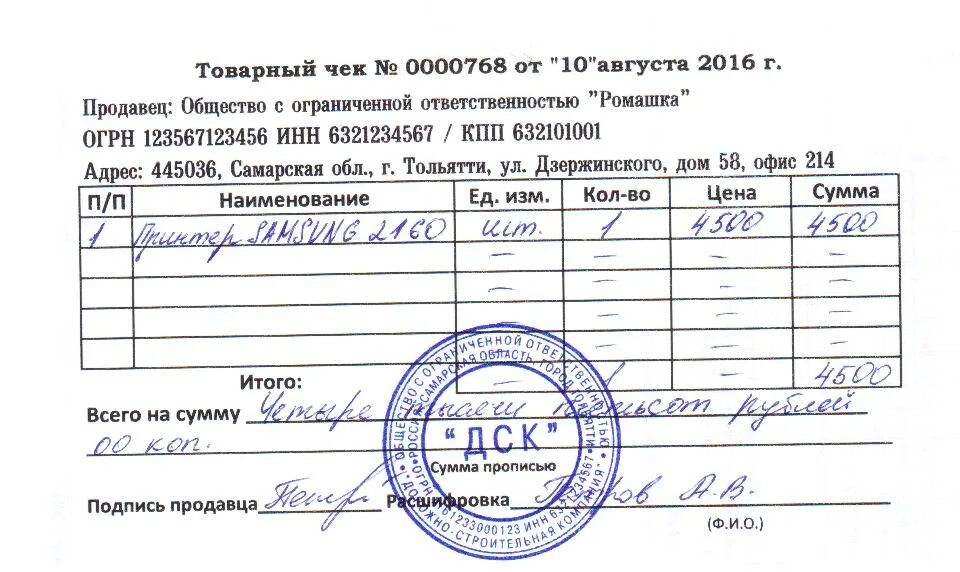 Товарный чек № 0000768 от "10"августа 2016 г.
Продавец: Общество с ограниченной ответственностью "Ромашка"
ОГРН 123567123456 ИНН 6321234567 / КПП 632101001
Адрес: 445036, Самарская обл., г. Тольятти, ул. Дзержинского, дом 58, офис 214
П/П Наименование Ед. изм. Кол-во Цена Сумма
1 Принтер SAMSUNG 2160 шт. 1 4500 4500
— — — —
— — — —
— — —
— — —
Итого: — 1 — 4500
Всего на сумму Четыре тысячи пятьсот рублей
00 коп.
Сумма прописью
Подпись продавца Расшифровка Петров А.В.
(Ф.И.О.)
ОБЩЕСТВО С ОГРАНИЧЕННОЙ ОТВЕТСТВЕННОСТЬЮ
"ДОРОЖНО-СТРОИТЕЛЬНАЯ КОМПАНИЯ"
САМАРСКАЯ ОБЛАСТЬ, ГОРОД ТОЛЬЯТТИ
ИНН 6321234567
"ДСК"